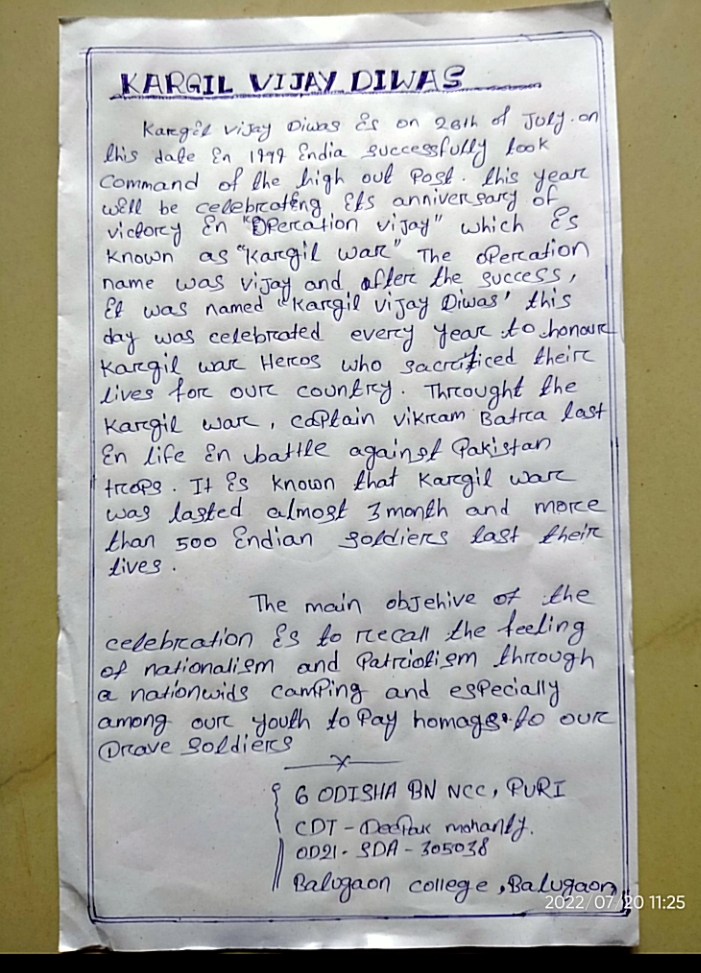 KARGIL VIJAY DIWAS
Kargil vijay Diwas is on 26th of July. on
this date in 1999 india successfully took
command of the high out post. this year
will be celebrating its anniversary of
victory in "Operation vijay" which is
known as "Kargil war" The operation
name was vijay and after the success,
it was named "Kargil vijay Diwas' this
day was celebrated every year to honour
Kargil war Heros who sacrificed their
lives for our country. Throught the
Kargil war, captain vikram Batra last
in life in battle against Pakistan
troops. It is known that Kargil war
was lasted almost 3 month and more
than 500 indian soldiers last their
lives.
The main objehive of the
celebration is to recall the feeling
of nationalism and patriotism through
a nationwids camping and especially
among our youth to pay homags to our
brave soldiers
6 ODISHA BN NCC, PURI
CDT - Deepak mohanty.
OD21 - SDA - 305038
Balugaon college, Balugaon
2022/07/20 11:25